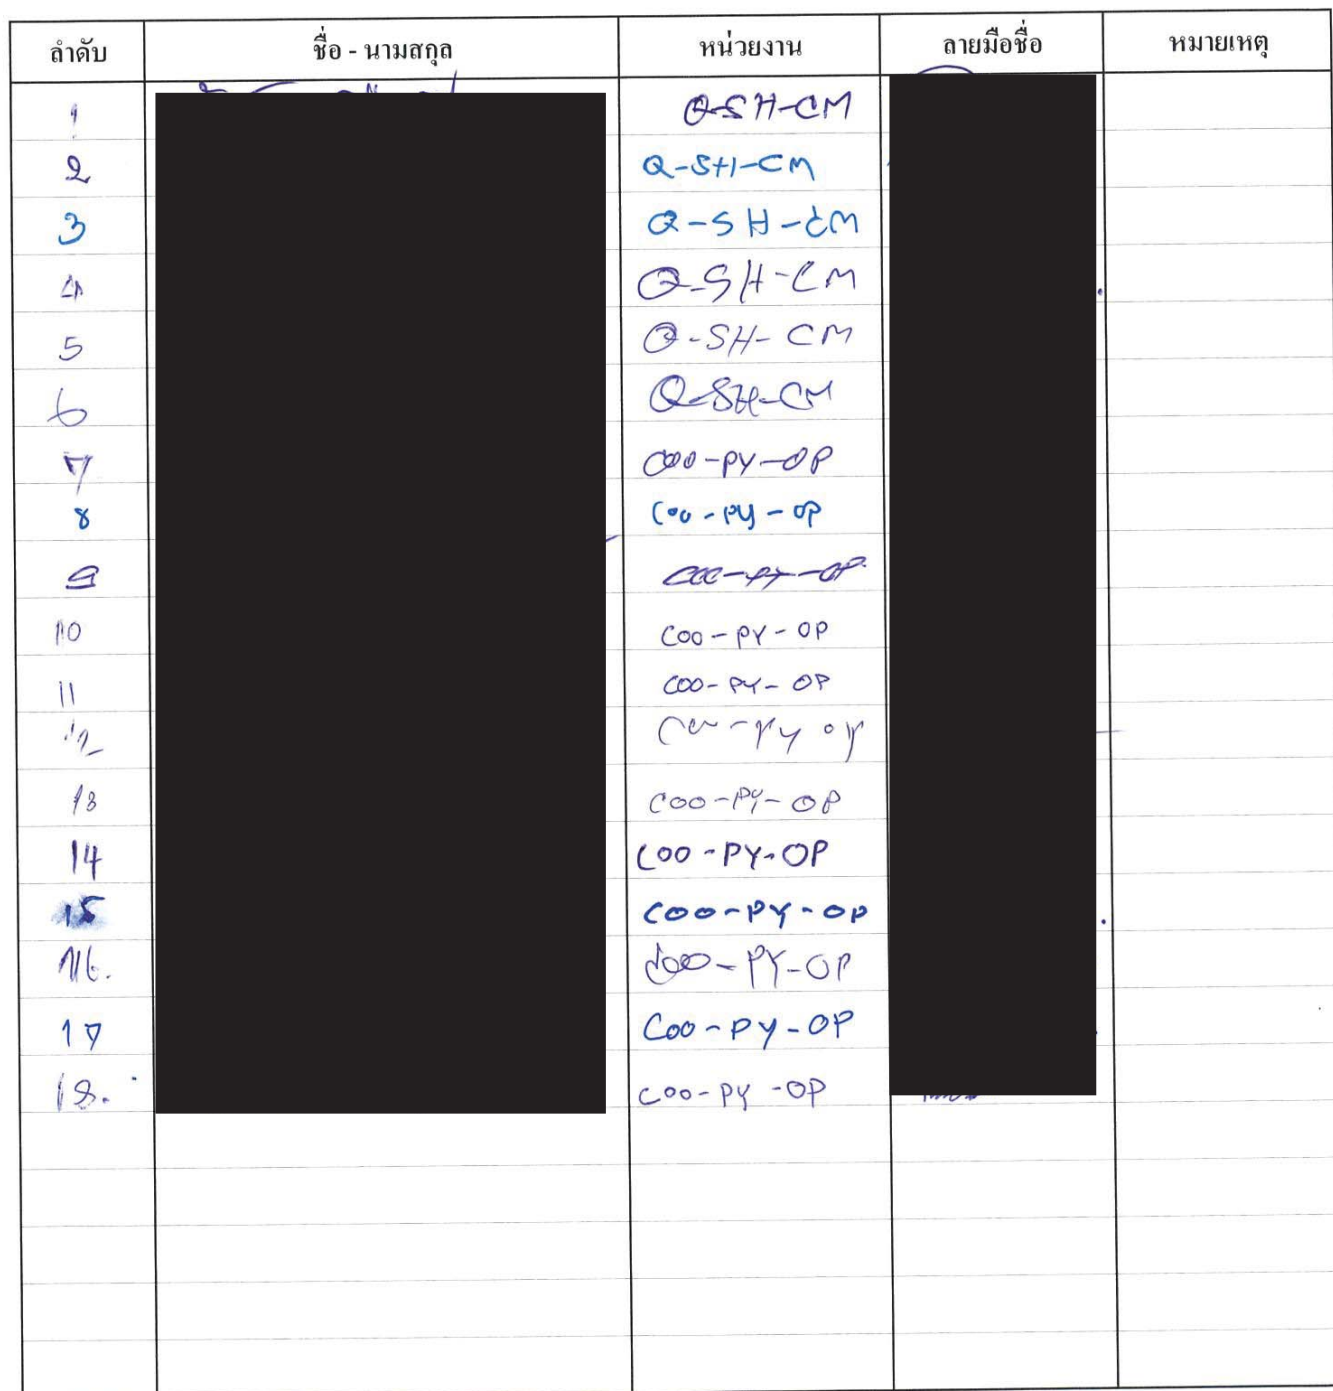 ลำดับ ชื่อ - นามสกุล หน่วยงาน ลายมือชื่อ หมายเหตุ
1 Q-SH-CM
2 Q-SH-CM
3 Q-SH-CM
4 Q-SH-CM
5 Q-SH-CM
6 Q-SH-CM
7 COO-PY-OP
8 COO-PY-OP
9 COO-PY-OP
10 COO-PY-OP
11 COO-PY-OP
12 COO-PY-OP
13 COO-PY-OP
14 COO-PY-OP
15 COO-PY-OP
16. COO-PY-OP
17 COO-PY-OP
18. COO-PY-OP